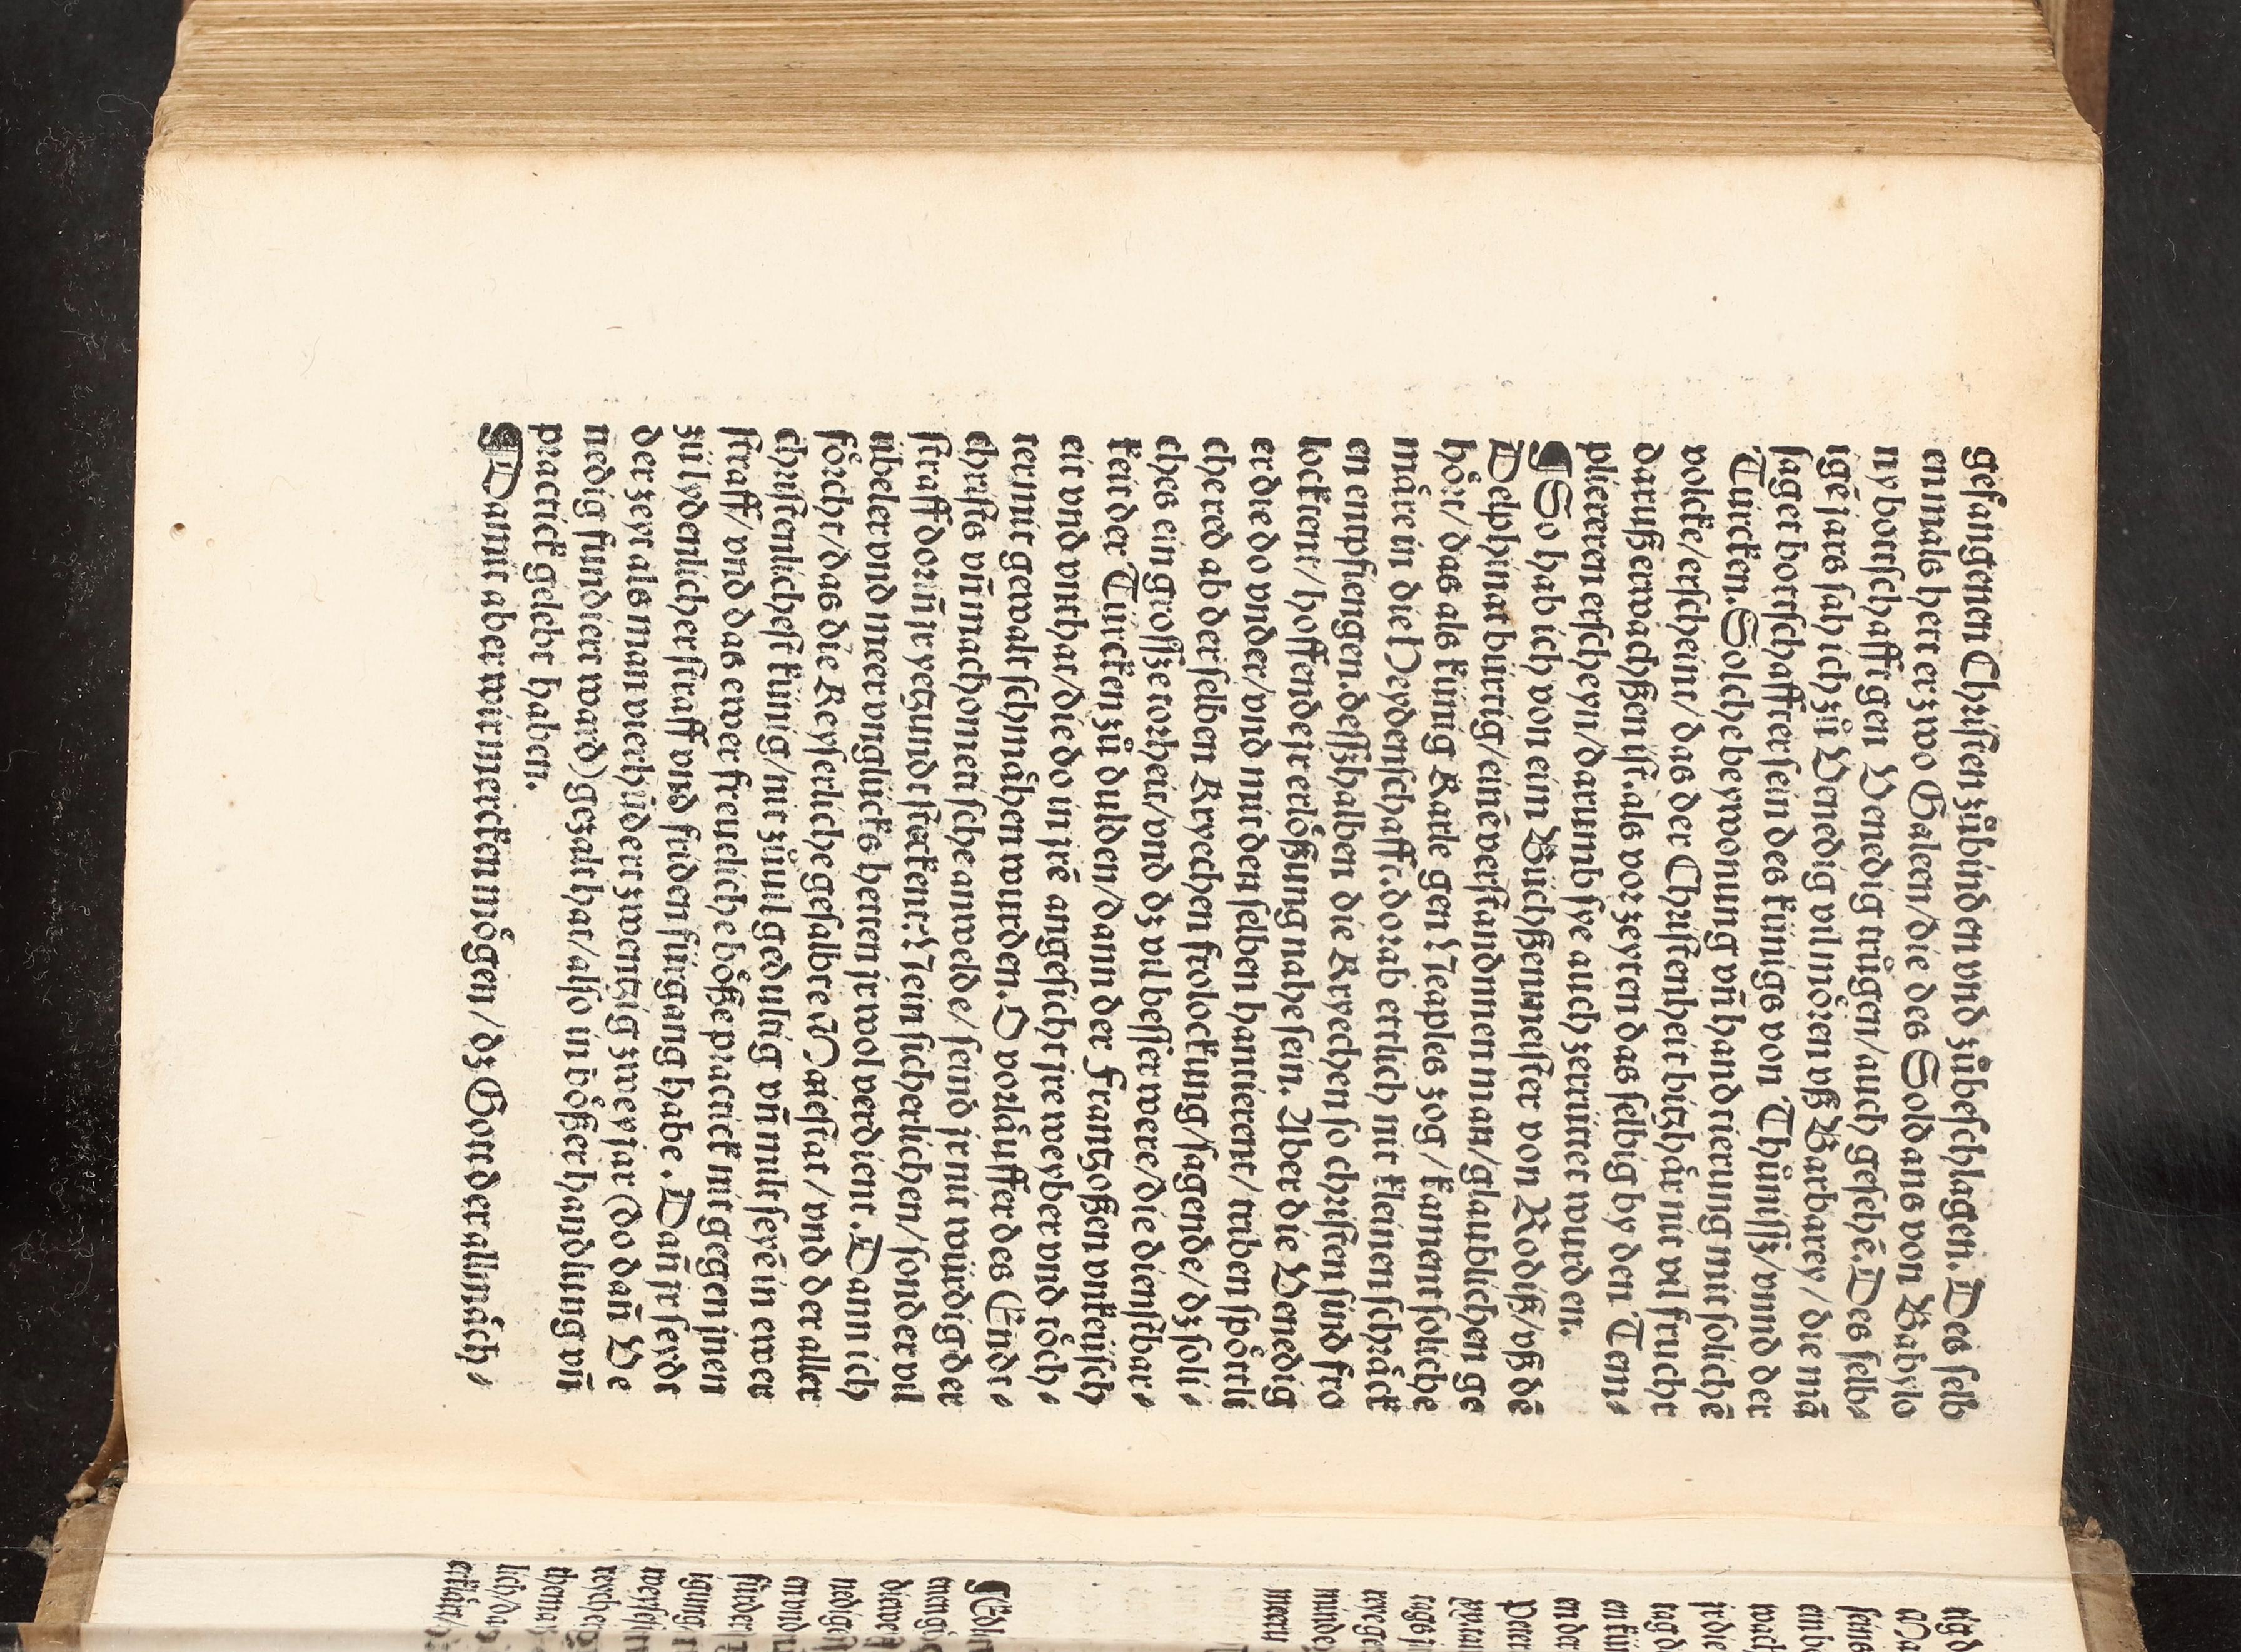 gefangenen Christen zůbinden vnd zůbeschlagen. Des selb
enmals hett er zwo Galeen/die des Soldans von Babylo
ny bottschafft gen Venedig trůgen/auch gesehē. Des selb⸗
igē jars sah ich zů Venedig vil mören vß Barbarey/die mā
saget bottschaffter sein des künigs von Thünisß/vnnd der
Türcken. Solche beywonung vñ handtierung mit solichē
volcke/erscheint/das der Christenheit bitzhår nit vil frucht
daruß erwachßen ist. als vorzeyten das selbig by den Tem⸗
plierern erscheyn/darumb sye auch zerrüttet wurden.
¶So hab ich von eim Büchßenmeister von Rodiß/vß dē
Delphinat bürtig/einē verstandnen man/glaublichen ge
hört/das als künig Karle gen Neaples zog/kament soliche
måre in die Heydenschafft. dorab ettlich nit kleinen schräck
en entpfiengen. desßhalben die Kryechen so christen sind fro
locktent/hoffende jr erlößung nahe sein. Aber die Venedig
er die do vnder/vnd mit den selben hantierent/triben spöttli
che red ab der selben Kryechen frolockung/sagende/dz soli⸗
ches ein grosße torheit/vnd dz vil besser were/die dienstbar⸗
keit der Türcken zů dulden/dann der Frantzoßen vnkeüsch
eit vnd vnthat/die do in jrē angesicht jre weyber vnd töch⸗
ter mit gewalt schmåhen wurden. O vorläuffer des Endt⸗
christs vñ machometische anwelde/seind jr nit würdig der
straff dorin jr yetzundt steckent: Nein sicherlichen/sonder vil
übeler vnd meer vnglücks hetten jr wol verdient. Dann ich
förcht/das die Keyserliche gesalbte Maiestat/vnd der aller
christenlichest künig/nit zůuil gedultig vñ milt seyē in ewer
straff/vnd das ewer freueliche böße practick mit gegen jnen
zů lydenlicher straff vnd friden fürgang habe. Dañ jr seydt
der zeyt als man vierhūdert zwentzig zwey jar (do dañ Ve
nedig fundiert ward) gezalt hat/also in bößer handlung vñ
practick gelebt haben.
¶Damit aber wir mercken mögen/dz Gott der allmåch⸗